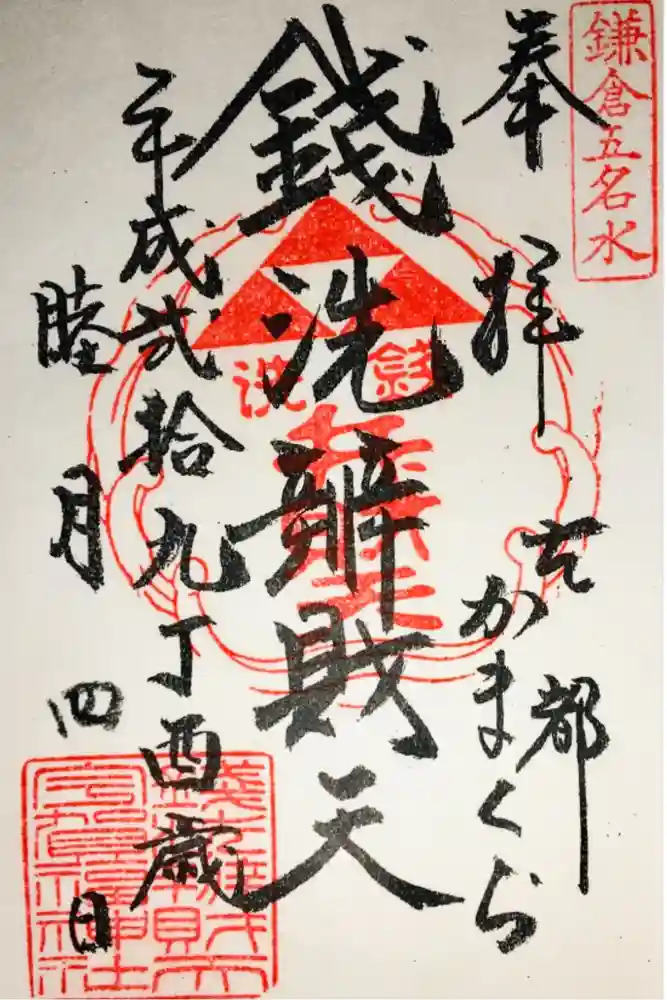 鎌倉五名水
奉拝
古都
かまくら
錢洗辨財天
銭洗
平成弐拾九丁酉歳
睦月四日